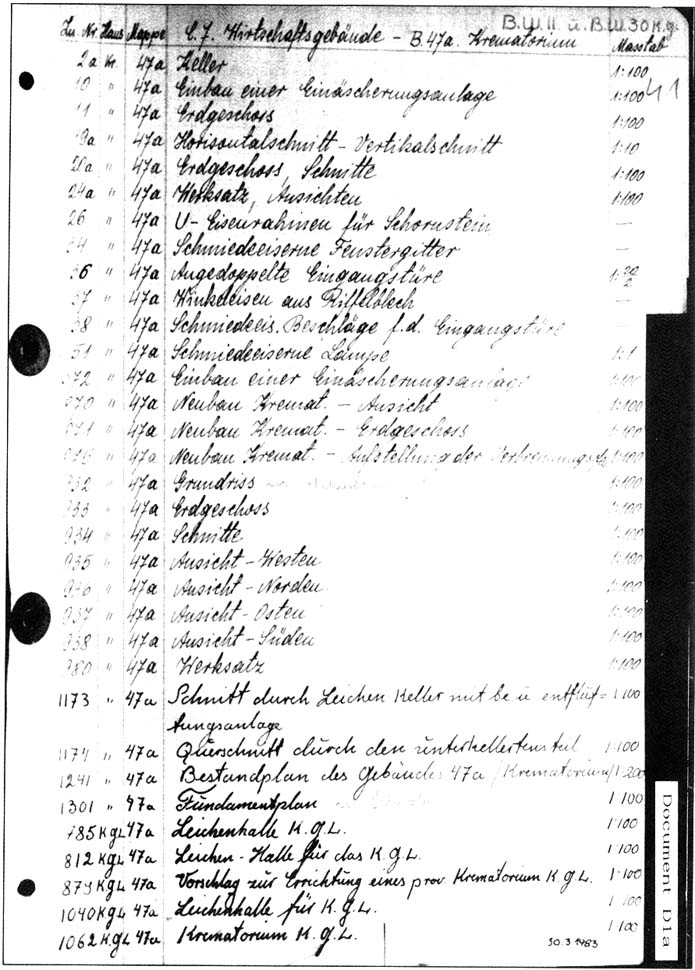 B.W.11 u. B.W.30 K.g.L.
Zn. Nr. Haus Mappe C.7. Wirtschaftsgebäude – B.47a. Krematorium Masstab
41
2a Kr. 47a Keller 1:100
10 " 47a Einbau einer Einäscherungsanlage 1:100
11 " 47a Erdgeschoss 1:100
19a " 47a Horisontalschnitt – Vertikalschnitt 1:10
20a " 47a Erdgeschoss, Schnitte 1:100
24a " 47a Werksatz, Ansichten 1:100
26 " 47a U-Eisenrahmen für Schornstein —
34 " 47a Schmiedeeiserne Fenstergitter —
36 " 47a Aufgedoppelte Eingangstüre
37 " 47a Winkeleisen aus Riffelblech —
38 " 47a Schmiedeeis. Beschläge f.d. Eingangstüre —
51 " 47a Schmiedeeiserne Lampe 1:1
" 47a Einbau einer Einäscherungsanlage 1:100
" 47a Neubau Kremat. – Ansicht 1:100
" 47a Neubau Kremat. – Erdgeschoss 1:100
" 47a Neubau Kremat. – Aufstellung der 1:100
932 " 47a Grundriss 1:100
933 " 47a Erdgeschoss 1:100
934 " 47a Schnitte 1:100
935 " 47a Ansicht – Westen 1:100
936 " 47a Ansicht – Norden 1:100
937 " 47a Ansicht – Osten 1:100
938 " 47a Ansicht – Süden 1:100
980 " 47a Werksatz 1:100
1173 " 47a Schnitt durch Leichen Keller mit be u entlüf= 1:100
tungsanlage
1174 " 47a Querschnitt durch den unterkellerten teil 1:100
1241 " 47a Bestandplan des Gebäudes 47a (Krematorium) 1:200
1301 " 47a Fundamentplan 1:100
785 KgL 47a Leichenhalle K.g.L. 1:100
812 KgL 47a Leichen-Halle für das K.g.L. 1:100
KgL 47a Vorschlag zur Errichtung eines prov. Krematorium K.g.L. 1:100
1040 KgL 47a Leichenhalle für K.g.L. 1:100
1062 KgL 47a Krematorium K.g.L. 1:100
30.3.1983
Document D1a